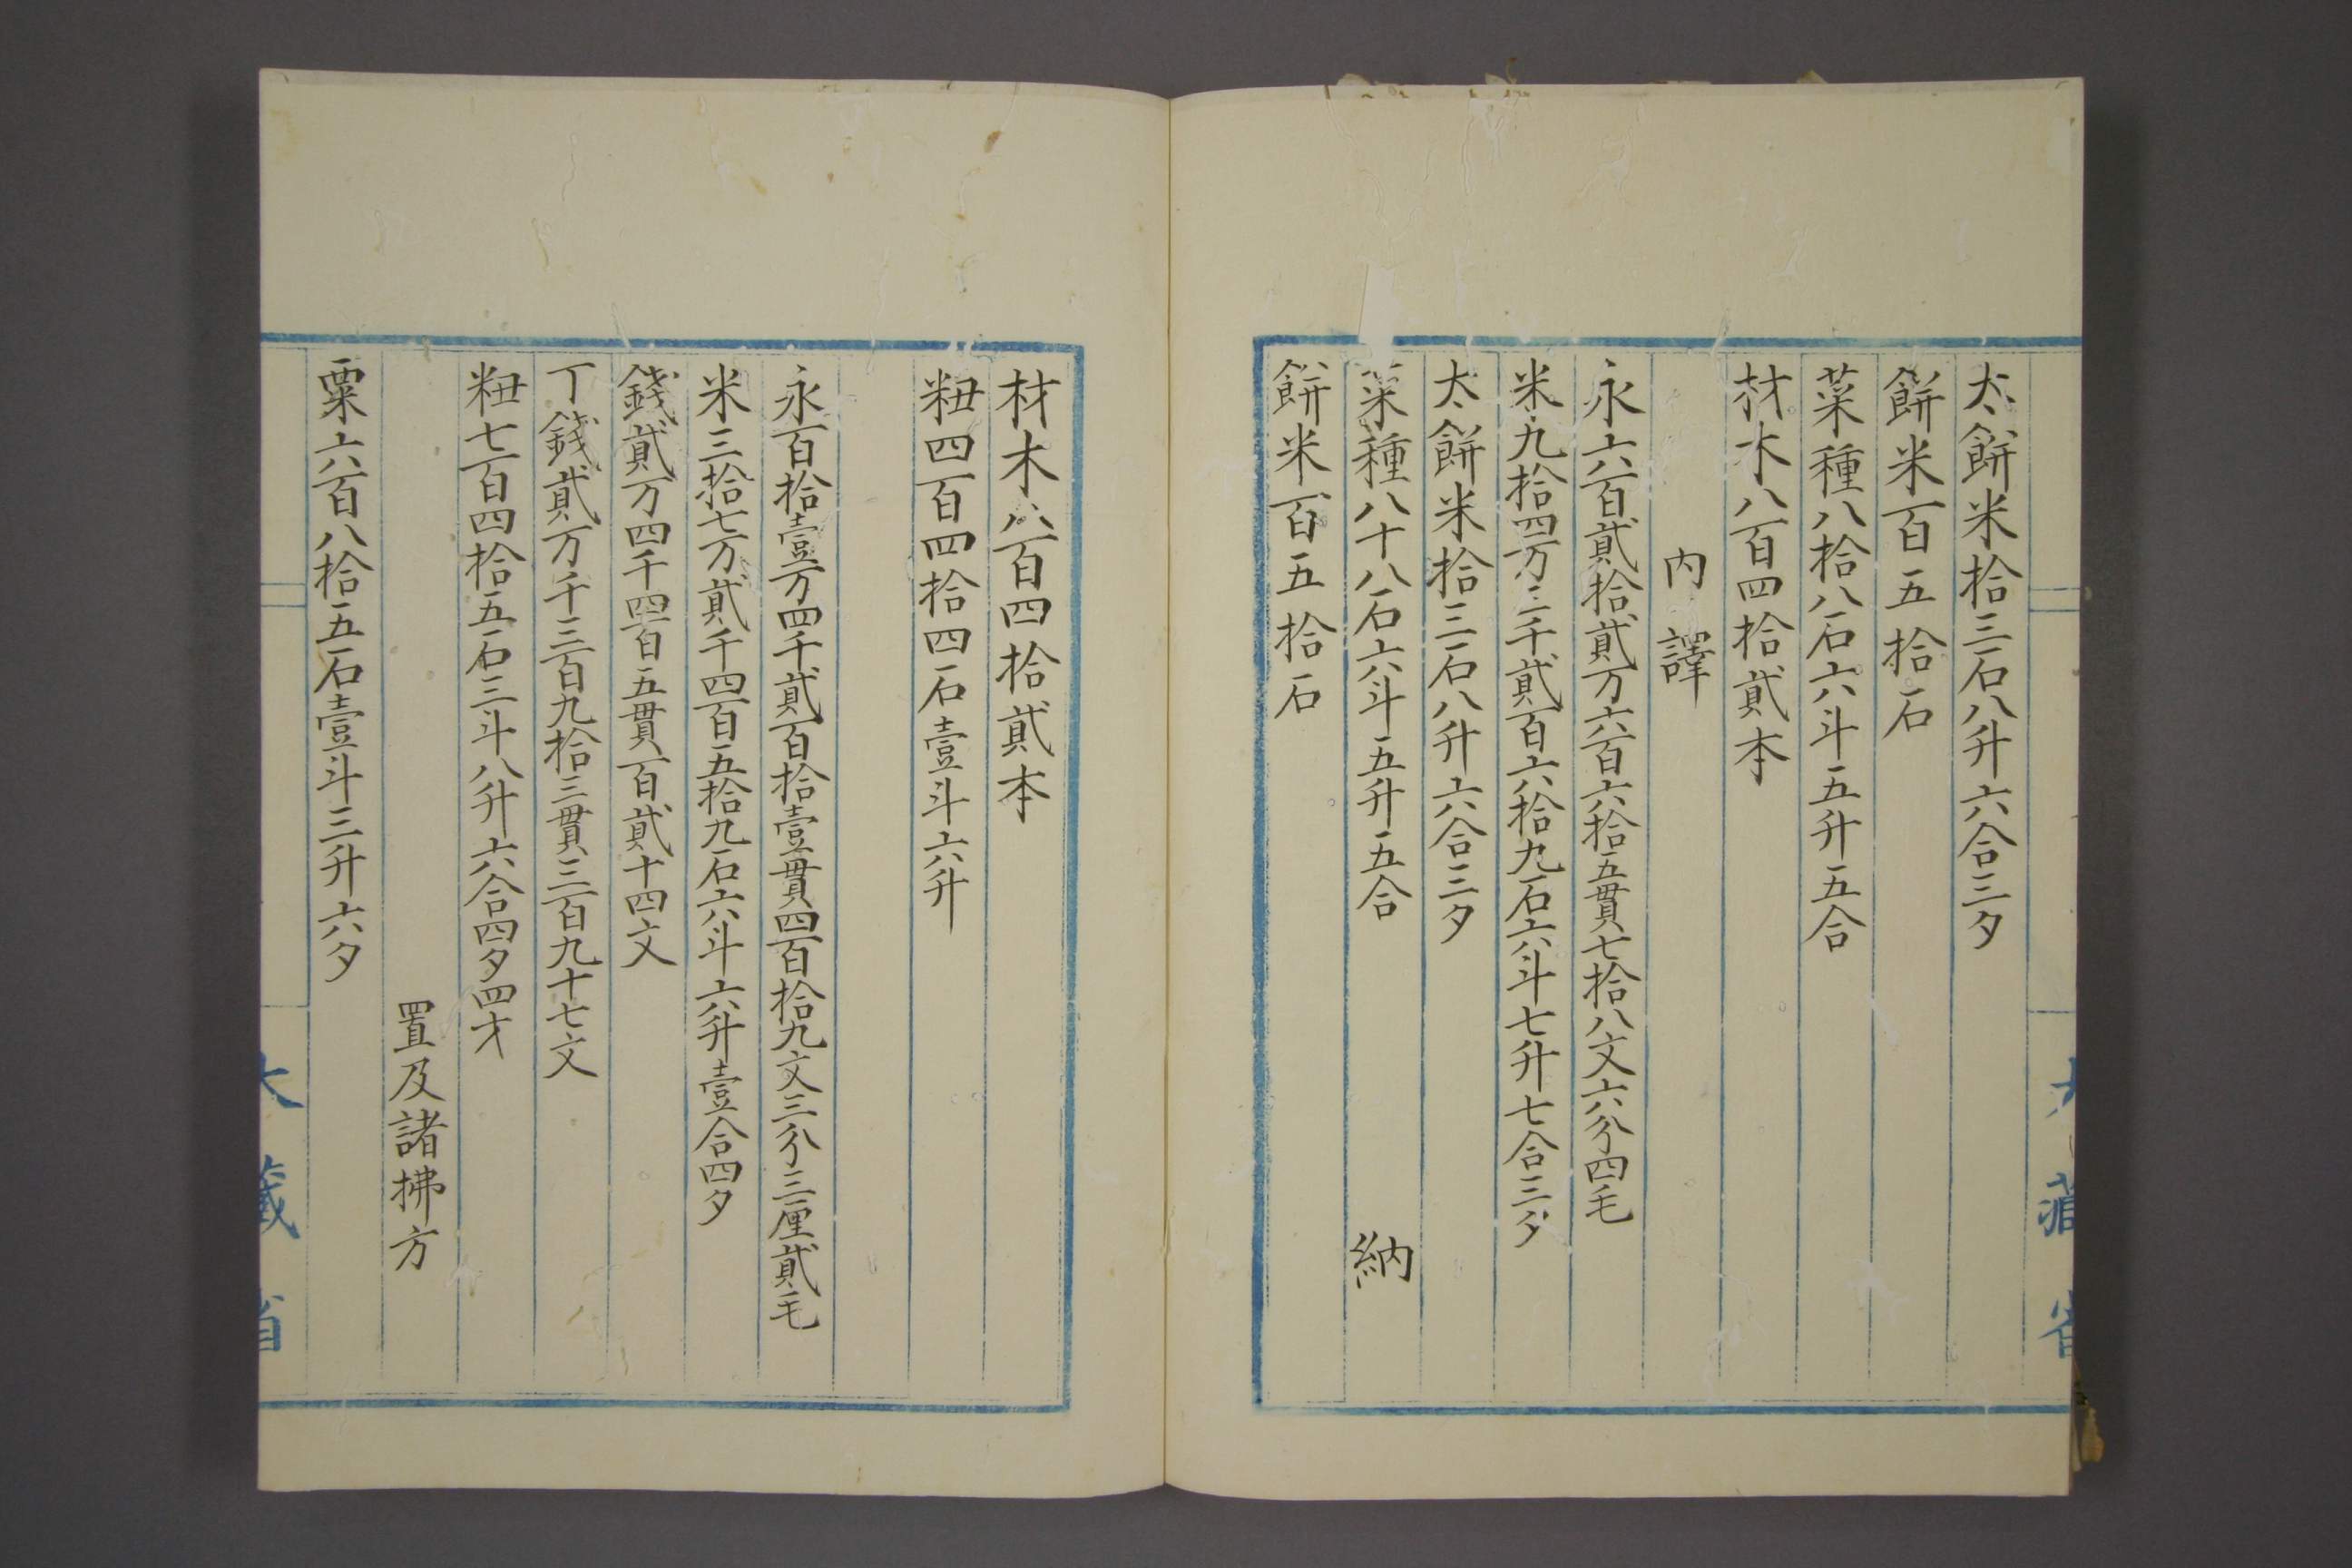 太餅米拾三石八升六合三夕
餅米百五拾石
菜種八拾八石六斗五升五合
材木八百四拾貳本
内譯
永六百貳拾貳万六百六拾五貫七拾八文六分四毛
米九拾四万三千貳百六拾九石六斗七升七合三夕
太餅米拾三石八升六合三夕
菜種八十八石六斗五升五合 納
餅米百五拾石
材木八百四拾貳本
籾四百四拾四石壹斗六升
永百拾壹万四千貳百拾壹貫四百拾九文三分三厘貳毛
米三拾七万貳千四百五拾九石六斗六升壹合四夕
錢貳万四千四百五貫百貳十四文
丁錢貳万千三百九拾三貫三百九十七文
籾七百四拾五石三斗八升六合四夕四才
置及諸拂方
粟六百八拾五石壹斗三升六夕
大藏省